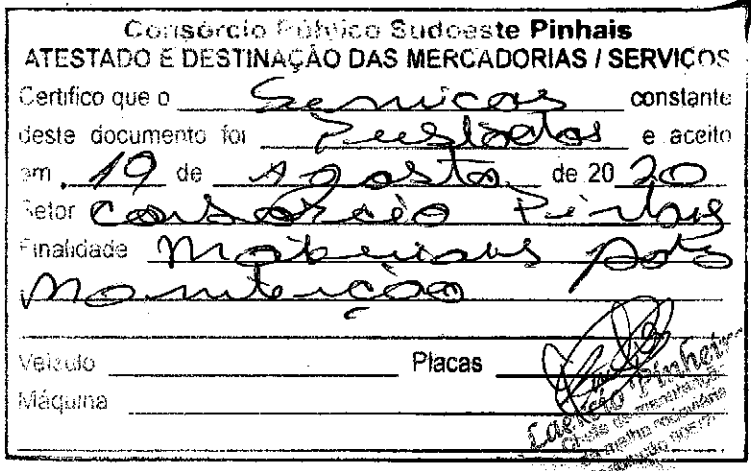 Consórcio Público Sudoeste Pinhais
ATESTADO E DESTINAÇÃO DAS MERCADORIAS / SERVIÇOS
Certifico que o Serviços constante
deste documento foi Prestados e aceito
em 19 de Agosto de 2020
Setor Consórcio Pinhais
Finalidade Materiais para
Manutenção
Veículo Placas
Máquina
Laercio Pinheiro
Chefe de manutenção
da malha rodoviária